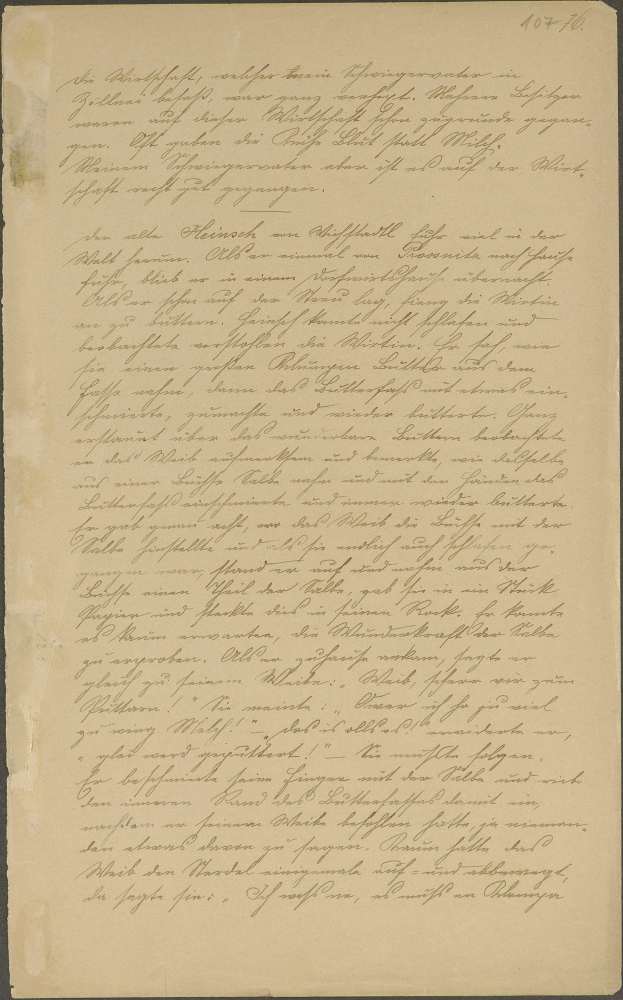 107 76.
Die Wirtschaft, welcher mein Schwiegervater in
Zöllnei besaß, war ganz verhext. Mehrere Besitzer
waren auf dieser Wirtschaft schon zugrunde gegan-
gen. Oft gaben die Kühe Blut statt Milch.
Meinem Schwiegervater aber ist es auf der Wirt-
schaft recht gut gegangen.
Der alte Heinsch von Wichstadtl fuhr viel in der
Welt herum. Als er einmal von Prossnitz nach Hause
fuhr, blieb er in einem Dorfwirtshause übernacht.
Als er schon auf der Streu lag, fieng die Wirtin
an zu buttern. Heinsch konnte nicht schlafen und
beobachtete verstohlen die Wirtin. Er sah, wie
sie einen großen Klumpen Butter aus dem
Fasse nahm, dann das Butterfass mit etwas ein-
schmierte, zumachte und wieder butterte. Ganz
erstaunt über das wunderbare Buttern beobachtete
er das Weib aufmerksam und bemerkte, wie dasselbe
aus einer Büchse Salbe nahm und mit den Händen das
Butterfass einschmierte und immer wieder butterte.
Er gab genau acht, wo das Weib die Büchse mit der
Salbe hinstellte und als sie endlich auch schlafen ge-
gangen war, stand er auf und nahm aus der
Büchse einen Theil der Salbe, gab sie in ein Stück
Papier und steckte dies in seinen Rock. Er konnte
es kaum erwarten, die Wunderkraft der Salbe
zu erproben. Als er zuhause ankam, sagte er
gleich zu seinem Weibe: „Weib, scherr vor zum
Puttarn!" Sie meinte: „Ower ich ho zu viel
zu wing Melch!" – „Das is olls es!" erwiderte er,
„glei werd geputtert!" – Sie musste folgen.
Er beschmierte seine Finger mit der Salbe und rieb
den inneren Rand des Butterfasses damit ein,
nachdem er seinem Weibe befohlen hatte, ja nieman-
den etwas davon zu sagen. Kaum hatte das
Weib den Sterdel einigemale auf- und abbewegt,
da sagte sie: „Ich wehs ne, es muhs en Klompa